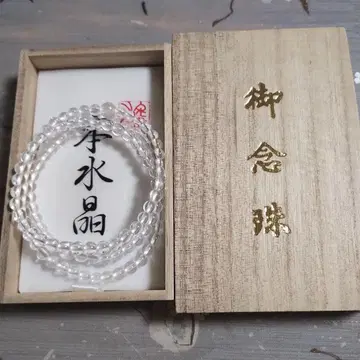 御念珠
本水晶